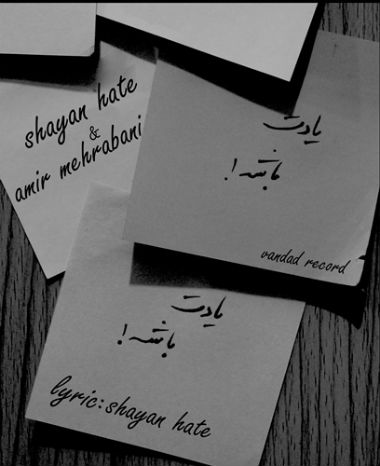 shayan hate
&
amir mehrabani
یادت
باشه!
vandad record
یادت
باشه!
lyric:shayan hate